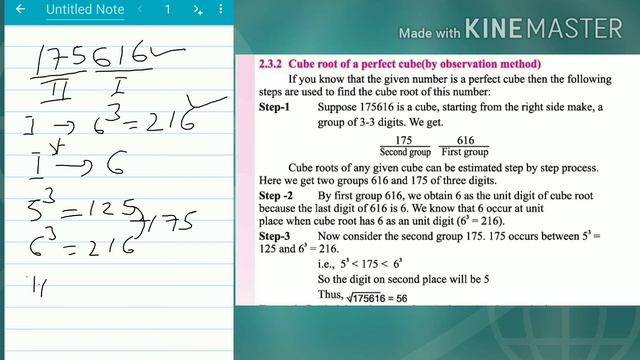 Untitled Note
1
Made with KINEMASTER
175 616
II I
I → 6³ = 216
I → 6
5³ = 125
6³ = 216
175
2.3.2 Cube root of a perfect cube(by observation method)
If you know that the given number is a perfect cube then the following
steps are used to find the cube root of this number:
Step-1 Suppose 175616 is a cube, starting from the right side make, a
group of 3-3 digits. We get.
175 616
Second group First group
Cube roots of any given cube can be estimated step by step process.
Here we get two groups 616 and 175 of three digits.
Step -2 By first group 616, we obtain 6 as the unit digit of cube root
because the last digit of 616 is 6. We know that 6 occur at unit
place when cube root has 6 as an unit digit (6³ = 216).
Step-3 Now consider the second group 175. 175 occurs between 5³ =
125 and 6³ = 216.
i.e., 5³ < 175 < 6³
So the digit on second place will be 5
Thus, √175616 = 56